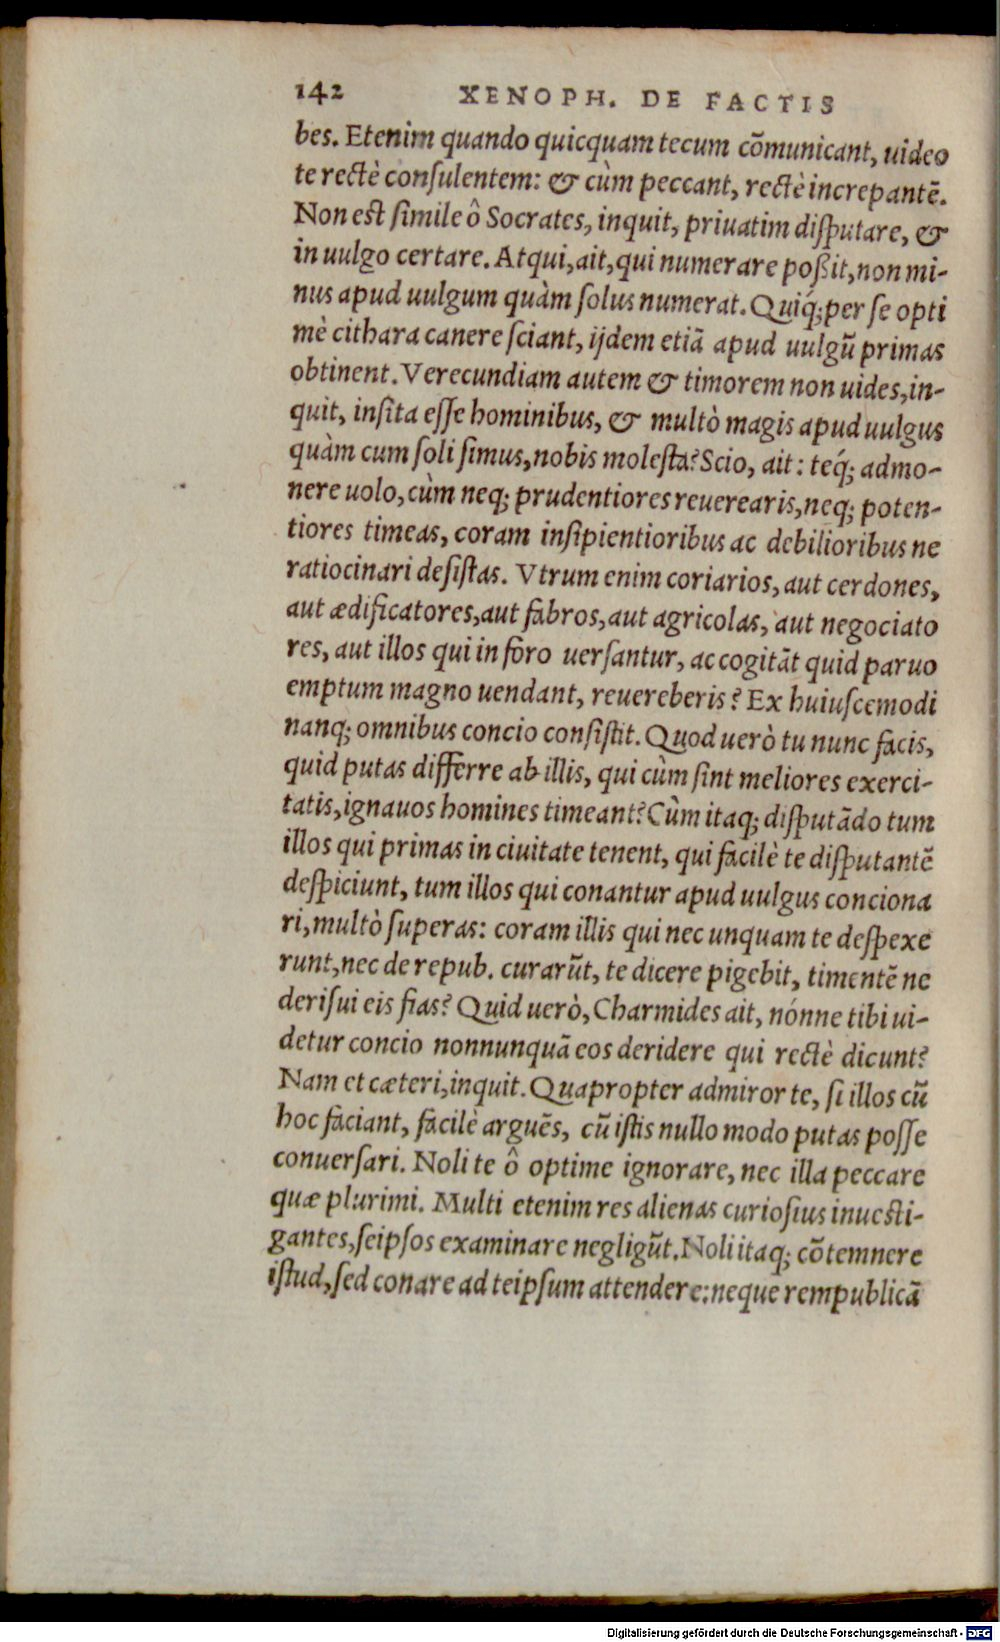 142 XENOPH. DE FACTIS
bes. Etenim quando quicquam tecum cõmunicant, uideo
te rectè conſulentem: & cùm peccant, rectè increpantẽ.
Non est ſimile ô Socrates, inquit, priuatim diſputare, &
in uulgo certare. Atqui, ait, qui numerare poßit, non mi-
nus apud uulgum quàm ſolus numerat. Quiq́; per ſe opti
mè cithara canere ſciant, ijdem etiã apud uulgũ primas
obtinent. Verecundiam autem & timorem non uides, in-
quit, inſita eſſe hominibus, & multò magis apud uulgus
quàm cum ſoli ſimus, nobis moleſta? Scio, ait: teq́; admo-
nere uolo, cùm neq; prudentiores reuerearis, neq; poten-
tiores timeas, coram inſipientioribus ac debilioribus ne
ratiocinari deſiſtas. Vtrum enim coriarios, aut cerdones,
aut ædificatores, aut fabros, aut agricolas, aut negociato
res, aut illos qui in foro uerſantur, ac cogitãt quid paruo
emptum magno uendant, reuereberis? Ex huiuſcemodi
nanq; omnibus concio conſiſtit. Quod uerò tu nunc facis,
quid putas differre ab illis, qui cùm ſint meliores exerci-
tatis, ignauos homines timeant? Cùm itaq; diſputãdo tum
illos qui primas in ciuitate tenent, qui facilè te diſputantẽ
deſpiciunt, tum illos qui conantur apud uulgus conciona
ri, multò ſuperas: coram illis qui nec unquam te deſpexe
runt, nec de repub. curarũt, te dicere pigebit, timentẽ ne
deriſui eis fias? Quid uerò, Charmides ait, nónne tibi ui-
detur concio nonnunquã eos deridere qui rectè dicunt?
Nam et cæteri, inquit. Quapropter admiror te, ſi illos cũ
hoc faciant, facilè arguẽs, cũ iſtis nullo modo putas poſſe
conuerſari. Noli te ô optime ignorare, nec illa peccare
quæ plurimi. Multi etenim res alienas curioſius inueſti-
gantes, ſeipſos examinare negligũt. Noli itaq; cõtemnere
iſtud, ſed conare ad teipſum attendere: neque rempublicã
Digitalisierung gefördert durch die Deutsche Forschungsgemeinschaft - DFG